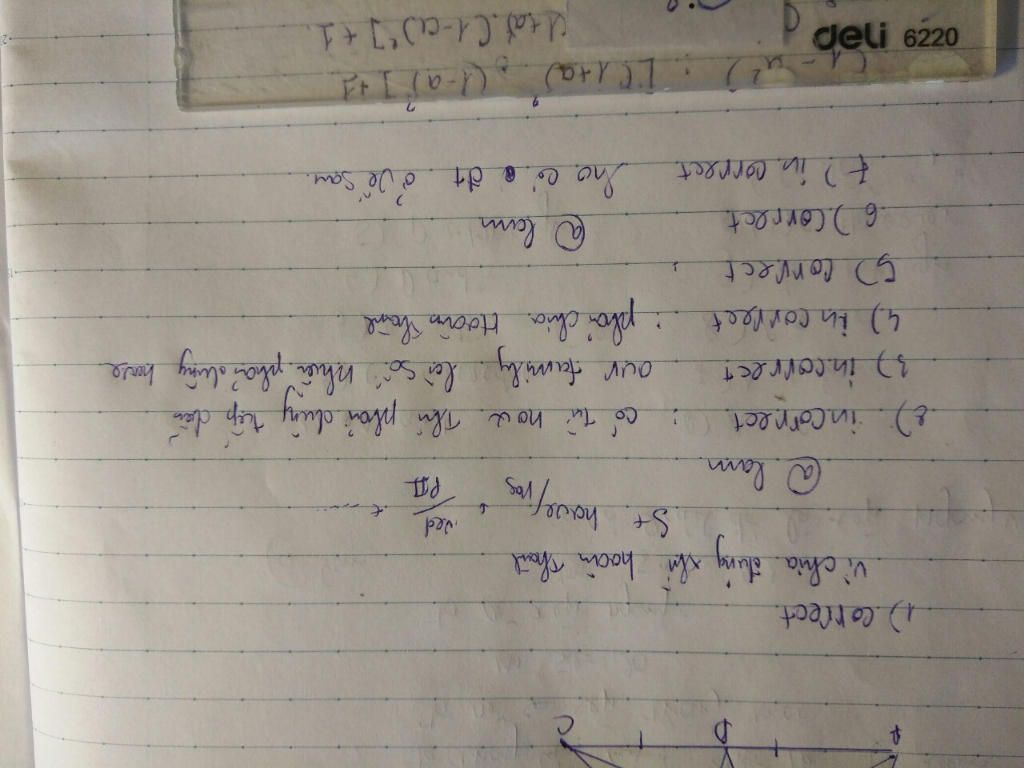 A D C
1) correct
vì chia đúng thì hoàn thành
S + have/has + Ved/PII + ....
@ lam
2) incorrect : có từ now thì phải dùng tiếp diễn
3) incorrect our family là số nhiều phải dùng have
4) incorrect : phải chia Hoàn thành
5) correct :
6) correct @ lam
7) incorrect có đt ở vế sau.
[(1+a) (1-a)²]+1
(1+a) (1-a)²]+1.
deli 6220